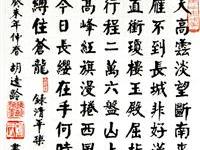 天高雲淡望斷南來
雁不到長城非好漢
直衝瓊樓玉殿屈
行程二萬六盤山上
高峰紅旗漫捲西風
今日長纓在手何時
縛住蒼龍 錄清平樂
癸未年仲春 胡達齡 書